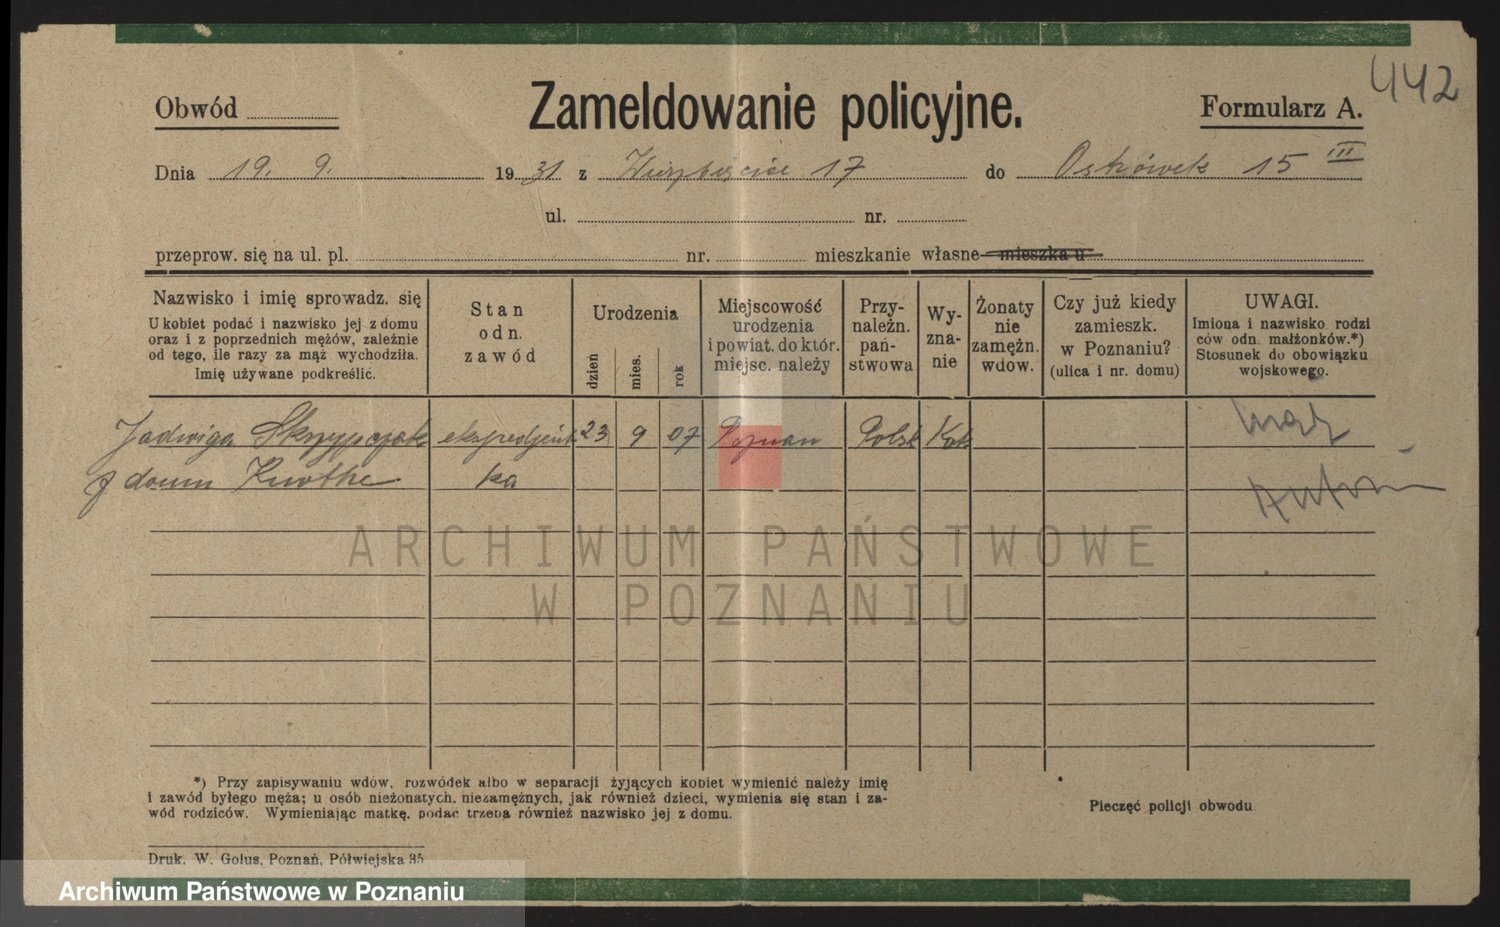 442
Obwód
Zameldowanie policyjne.
Formularz A.
Dnia 19. 9. 1931 z Wierzbięcice 17 do Ostrówek 15 III
ul. nr.
przeprow. się na ul. pl. nr. mieszkanie własne mieszka u
Nazwisko i imię sprowadz. się
U kobiet podać i nazwisko jej z domu
oraz i z poprzednich mężów, zależnie
od tego, ile razy za mąż wychodziła.
Imię używane podkreślić.
Stan
odn.
zawód
Urodzenia
dzień
mies.
rok
Miejscowość
urodzenia
i powiat. do któr.
miejsc. należy
Przy-
należn.
pań-
stwowa
Wy-
zna-
nie
Żonaty
nie
zamężn.
wdow.
Czy już kiedy
zamieszk.
w Poznaniu?
(ulica i nr. domu)
UWAGI.
Imiona i nazwisko rodzi
ców odn. małżonków.*)
Stosunek do obowiązku
wojskowego.
Jadwiga Skrzypczak ekspedjent 23 9 07 Poznań Polsk Kat mąż
z domu Knothe ka Antoni
ARCHIWUM PAŃSTWOWE
W POZNANIU
*) Przy zapisywaniu wdów, rozwódek albo w separacji żyjących kobiet wymienić należy imię
i zawód byłego męża; u osób nieżonatych, niezamężnych, jak również dzieci, wymienia się stan i za-
wód rodziców. Wymieniając matkę, podać trzeba również nazwisko jej z domu.
Pieczęć policji obwodu
Druk. W. Golus, Poznań, Półwiejska 35
Archiwum Państwowe w Poznaniu